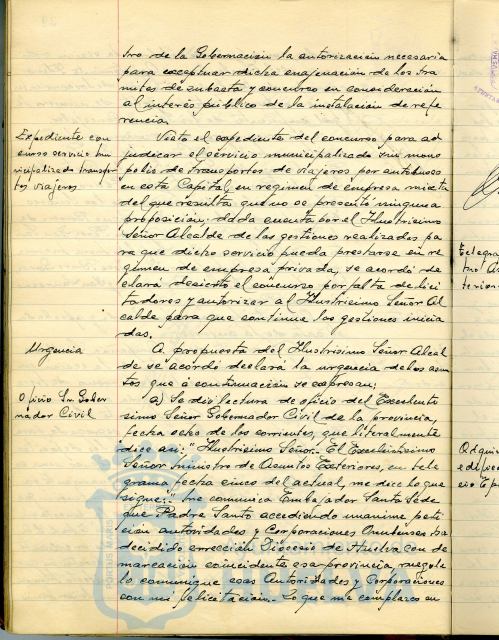 tro de la Gobernación la autorización necesaria
para exceptuar dicha enajenación de los trá
mites de subasta y concurso en consideración
al interés público de la instalación de refe
rencia.
Expediente con
curso servicio mu
nicipalizado transpor
tes viajeros
Visto el expediente del concurso para ad
judicar el servicio municipalizado sin mono
polio de transportes de viajeros por autobuses
en esta Capital, en regimen de empresa mixta
del que resulta que no se presentó ninguna
proposición; dada cuenta por el Ilustrisimo
Señor Alcalde de las gestiones realizadas pa
ra que dicho servicio pueda prestarse en re
gimen de empresa privada, se acordó de
clarar desierto el concurso por falta de lici
tadores y autorizar al Ilustrisimo Señor Al
calde para que continue las gestiones inicia
das.
Urgencia
A propuesta del Ilustrisimo Señor Alcal
de se acordó declarar la urgencia de los asun
tos que á continuación se expresan:
Oficio Sr. Gober
nador Civil
a) Se dió lectura de oficio del Excelentí
simo Señor Gobernador Civil de la provincia,
fecha ocho de los corrientes, que literalmente
dice así: "Ilustrisimo Señor.- El Excelentisimo
Señor ministro de Asuntos Exteriores, en tele
grama fecha cinco del actual, me dice lo que
sigue:- "me comunica Embajador Santa Sede
que Padre Santo accediendo unanime peti
ción autoridades y Corporaciones Onubenses ha
decidido erección Diócesis de Huelva con de
marcación coincidente esa provincia, ruegole
lo comunique esas Autoridades y Corporaciones
con mi felicitación.- Lo que me complazco en
PORTUS MARIS
Telegra